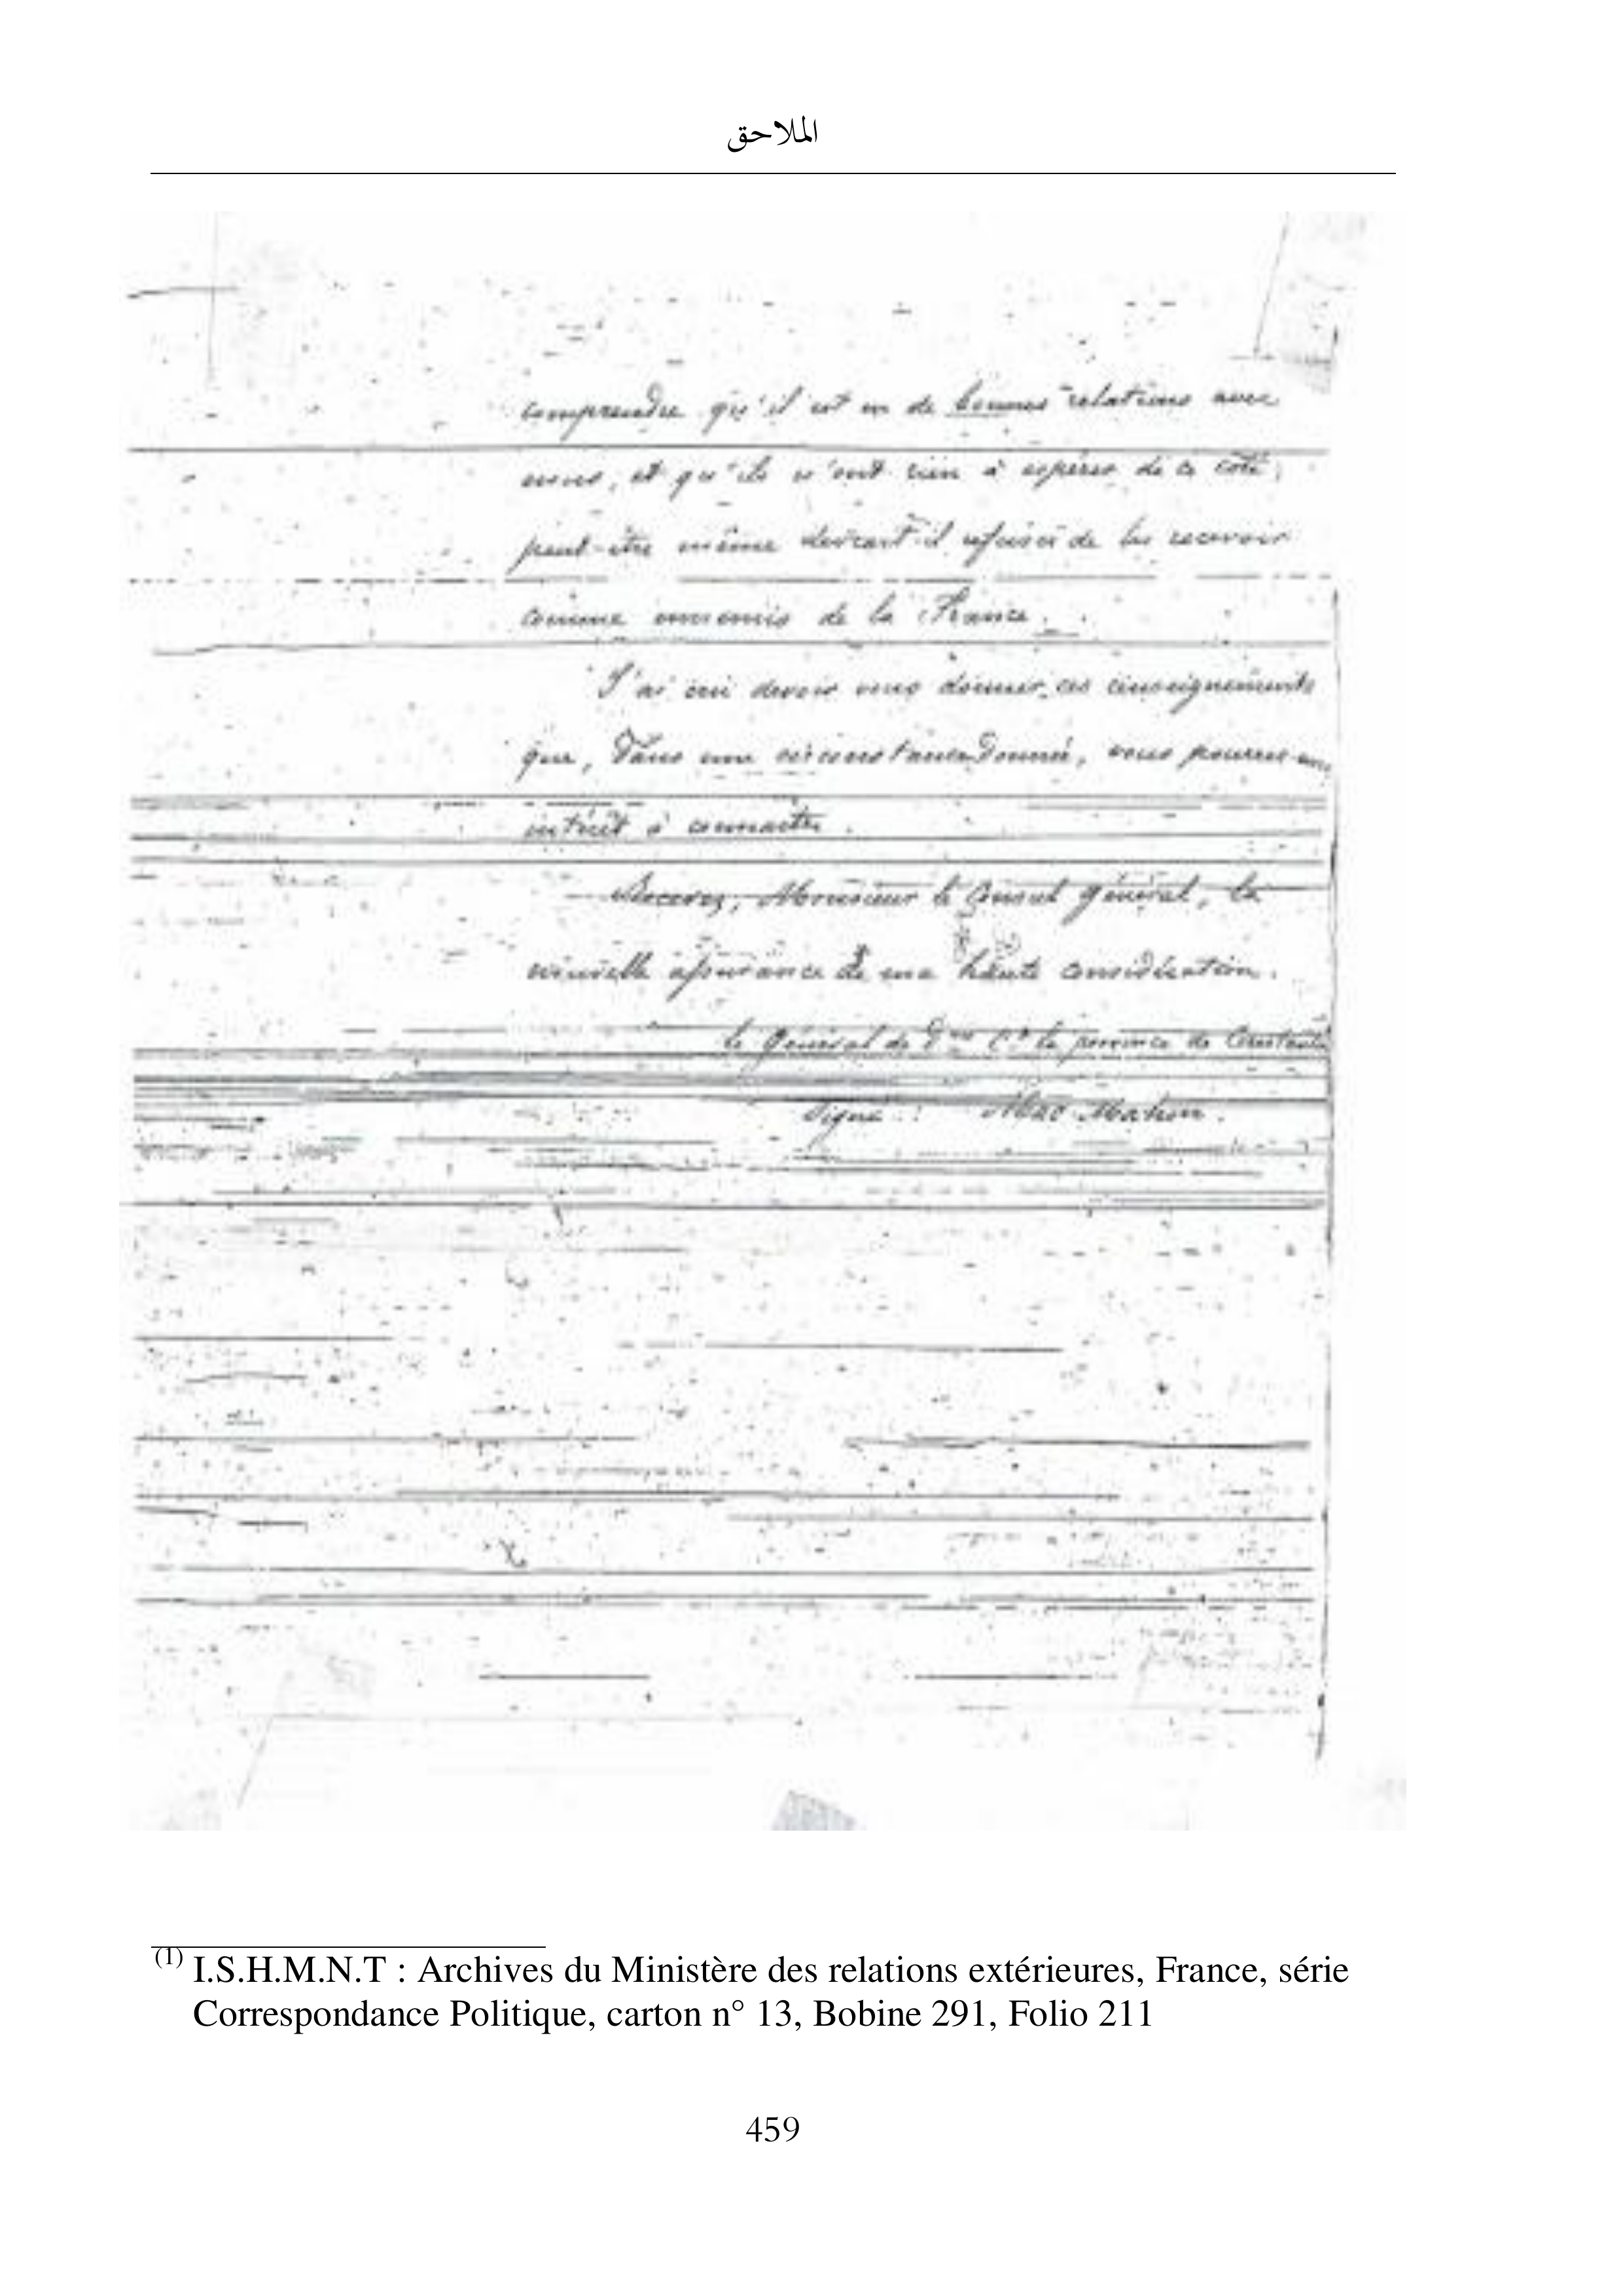 الملاحق
comprendre qu'il est en de bonnes relations avec
nous, et qu'ils n'ont rien à espérer de ce coté,
peut-être même devrait-il refuser de les recevoir
comme ennemis de la France.
J'ai cru devoir vous donner ces renseignements
que, dans une circonstance donnée, vous pourrez
intérêt à connaitre.
Recevez, Monsieur le Consul Général, la
nouvelle assurance de ma haute considération.
le Général de Don Ct la province de Constantine
Signé : Mac Mahon.
(1) I.S.H.M.N.T : Archives du Ministère des relations extérieures, France, série
Correspondance Politique, carton n° 13, Bobine 291, Folio 211
459